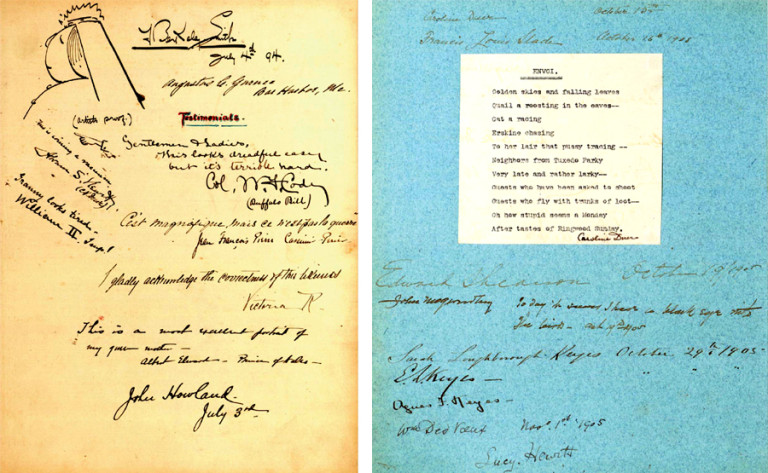 F. Berkeley Smith
July 4th 94.
Augustus C. Gurnee
Bar Harbor, Me.
(artists proof.)
Testimonials.
Gentlemen & Ladies,
This looks dreadful easy
but it's terrible hard.
Col. W. F. Cody
(Buffalo Bill)
William II
C'est magnifique, mais ce n'est pas la guerre
Jean François Pierre Casimir Perier
I gladly acknowledge the correctness of this likeness
Victoria R.
This is a most excellent portrait of
my
Albert Edward – Prince of Wales –
John Howland
July 3rd
Caroline Duer October 13th
Francis Louis Slade October 26th 1905
ENVOI.
Golden skies and falling leaves
Quail a roosting in the eaves--
Cat a racing
Erskine chasing
To her lair that pussy tracing --
Neighbors from Tuxedo Parky
Very late and rather larky--
Guests who have been asked to shoot
Guests who fly with trunks of loot--
Oh how stupid seems a Monday
After tastes of Ringwood Sunday.
Caroline Duer
Edward Shearson October 1905
John
Sarah Loughborough Keyes October 29th 1905
E. L. Keyes –
Agnes Keyes –
Nov. 1st 1905
Lucy Hewitt